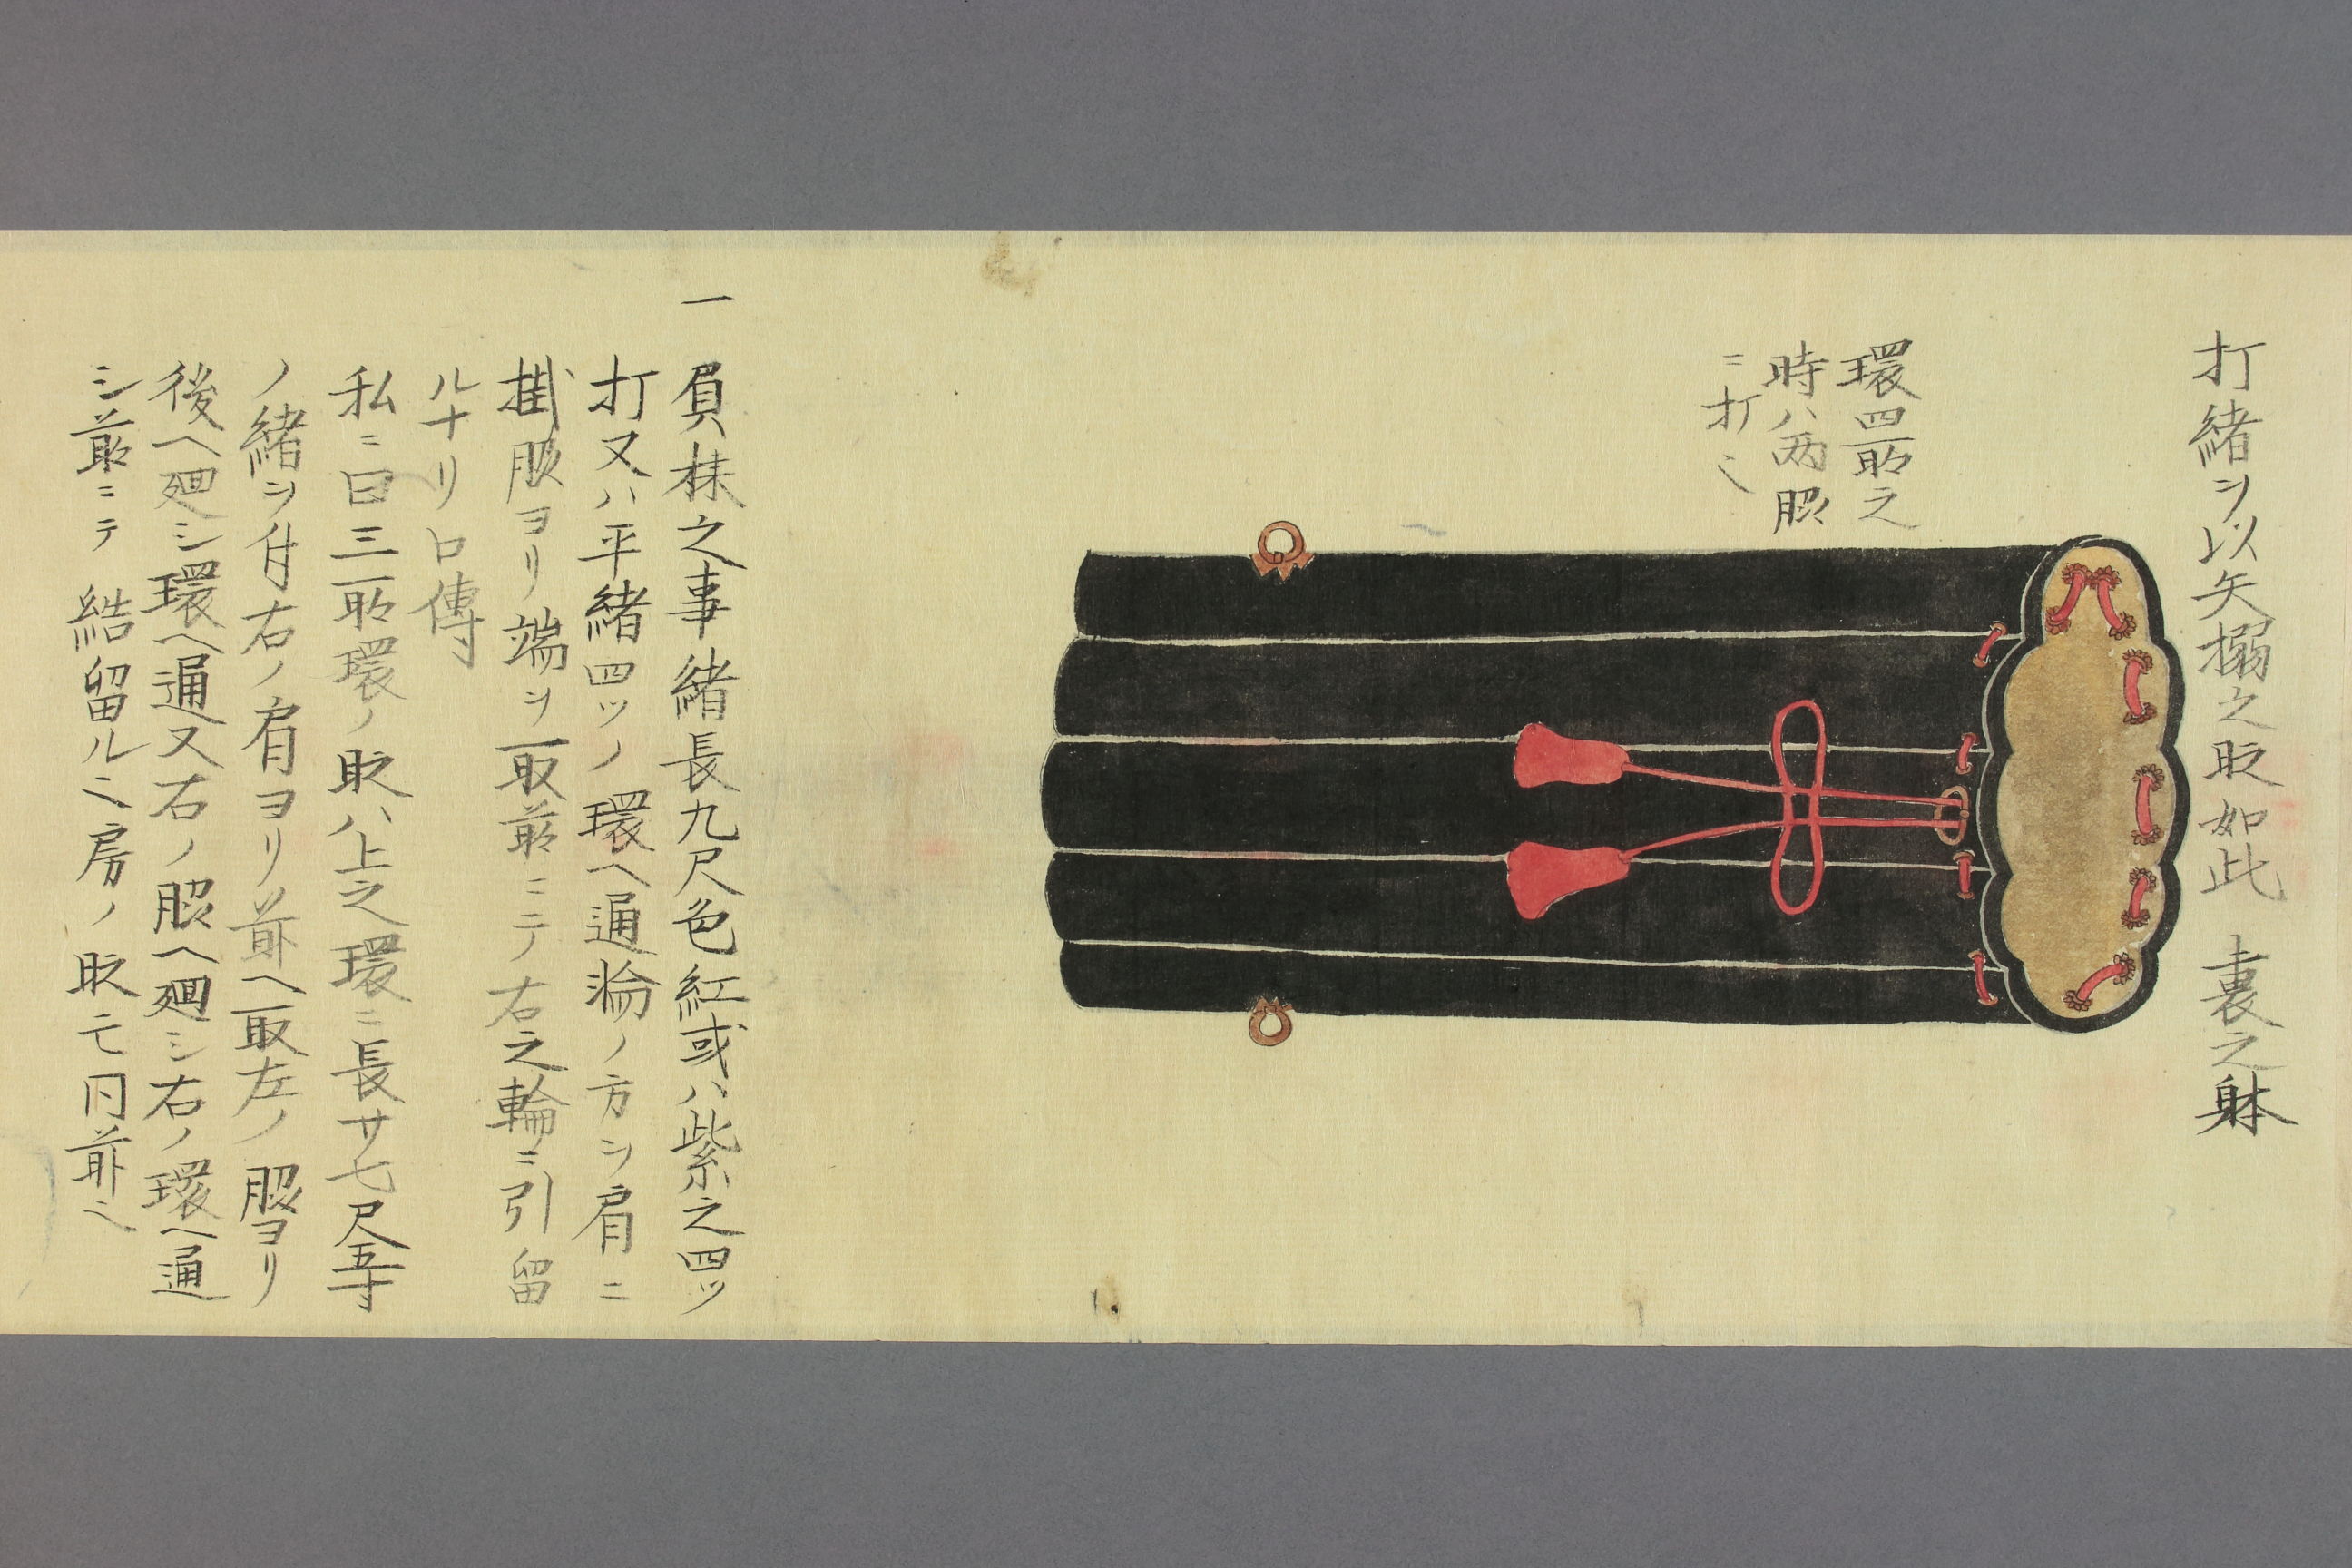 打緒ヲ以矢搦之時如此 裏之躰
環四所之
時ハ両脇
ニ打也
一 負様之事緒長九尺色紅或ハ紫之四ツ
打又ハ平緒四ツノ環ヘ通輪ノ方ヲ肩ニ
掛脇ヨリ端ヲ取前ニテ右之輪ニ引留
ルナリ口傳
私ニ曰三所環ノ時ハ上之環ニ長サ七尺五寸
ノ緒ヲ付右ノ肩ヨリ前ヘ取左ノ脇ヨリ
後ヘ廻シ環ヘ通又右ノ脇ヘ廻シ右ノ環ヘ通
シ前ニテ結留ル也房ノ時モ同前也